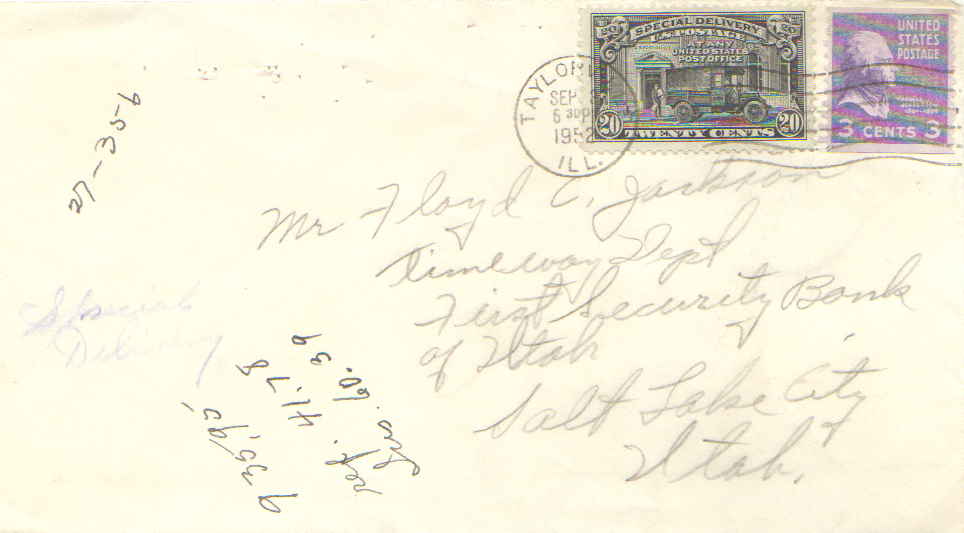 20 SPECIAL DELIVERY 20
U.S. POSTAGE
AT ANY
UNITED STATES
POST OFFICE
20 TWENTY CENTS 20
UNITED
STATES
POSTAGE
3 CENTS 3
SEP
6 30 P
1952
ILL.
27-356
Mr Floyd C. Jackson
Timeway Dept
First Security Bank
of Utah
Salt Lake City
Utah.
Special
Delivery
935.95
ref. 41.78
60.39